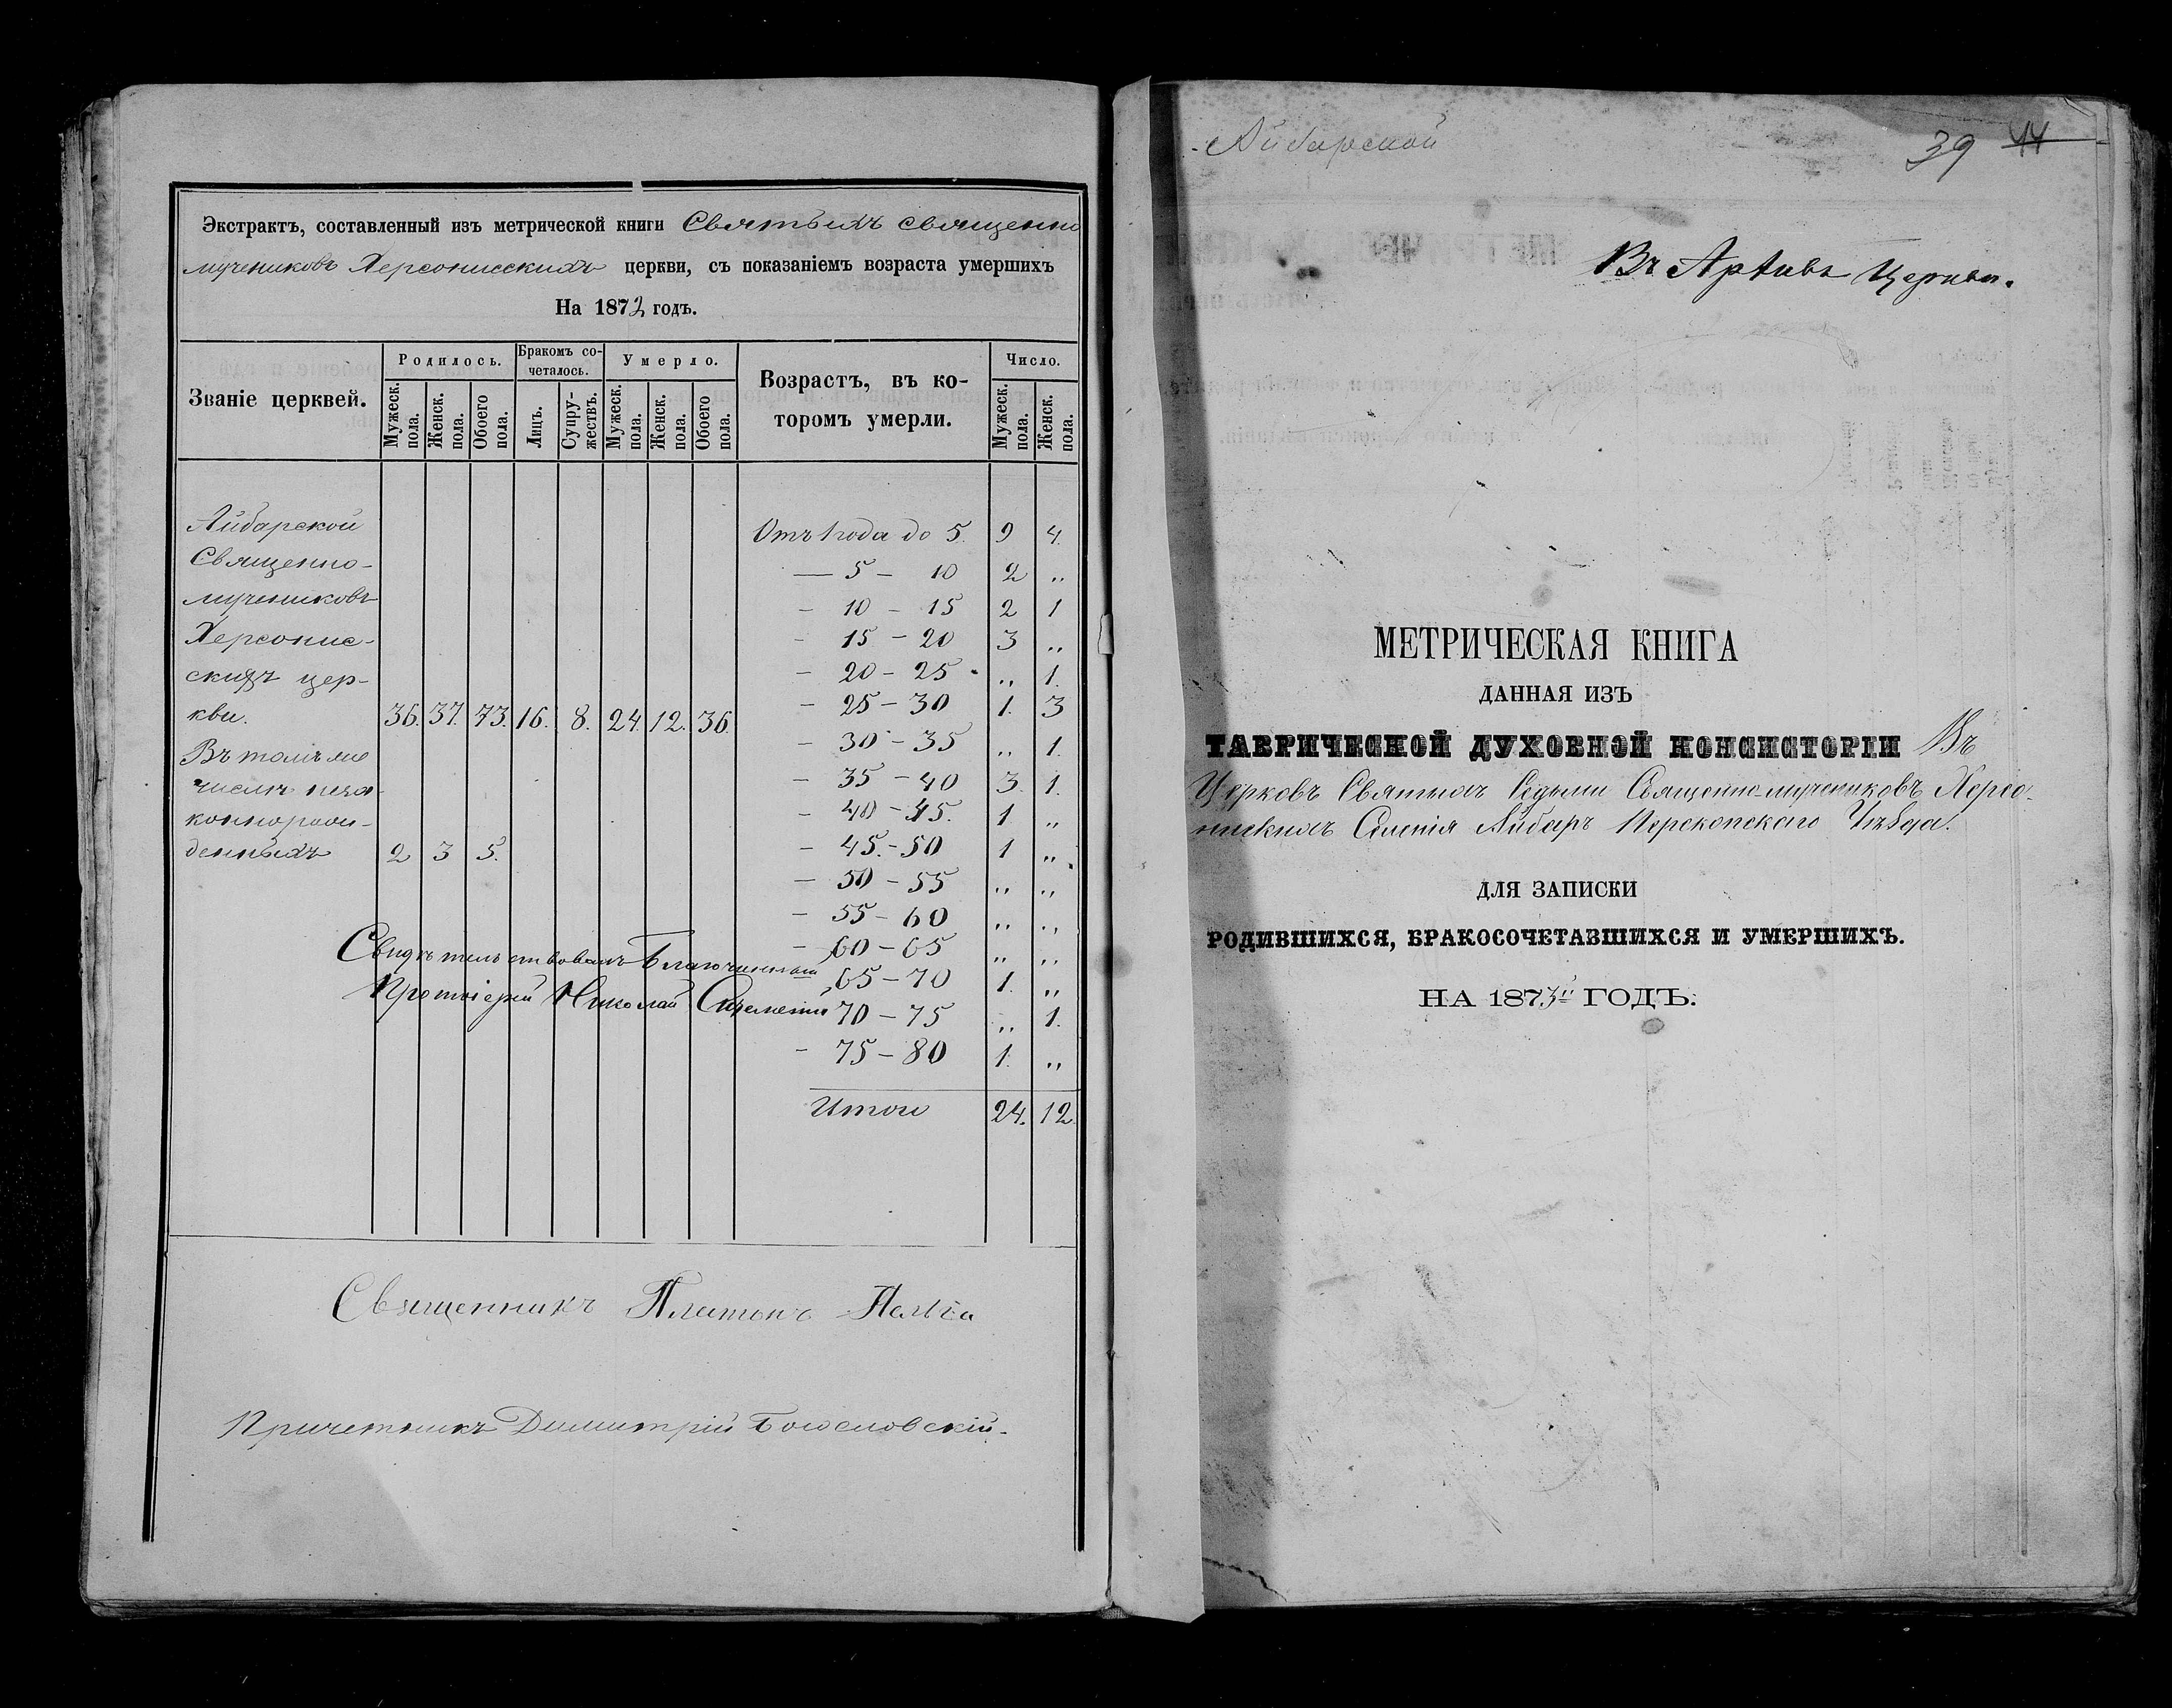 Экстрактъ, составленный изъ метрической книги Святыхъ священно
мучениковъ Херсонисскихъ церкви, съ показаніемъ возраста умершихъ
На 1872 годъ.
Званіе церквей.
Родилось.
Мужеск. пола.
Женск. пола.
Обоего пола.
Бракомъ со-
четалось.
Лицъ.
Супру-
жествъ.
Умерло.
Мужеск. пола.
Женск. пола.
Обоего пола.
Возрастъ, въ ко-
торомъ умерли.
Число.
Мужеск. пола.
Женск. пола.
Айбарской
Священно-
мучениковъ
Херсонис-
скихъ цер-
кви. 36. 37. 73. 16. 8. 24. 12. 36.
Въ томъ же
числѣ неза
коннорож-
денныхъ 2 3 5.
Отъ 1 года до 5. 9 4.
— 5 — 10 2 „
— 10 — 15 2 1
— 15 — 20 3 „
— 20 — 25 „ 1.
— 25 — 30 1. 3
— 30 — 35 „ 1.
— 35 — 40 3. 1.
— 40 — 45. 1 „
— 45. — 50 1 „
— 50 — 55 „ „
— 55 — 60 „ „
— 60 — 65 „ „
65 — 70 1. „
70 — 75 „ 1.
— 75 — 80 1. „
Итого 24. 12.
Свидѣтельствовалъ Благочинный
Протоіерей Николай
Священникъ Платонъ
Причетникъ Димитрій Богословскій.
Айбарской
39 44
Въ Архивъ Церкви.
МЕТРИЧЕСКАЯ КНИГА
ДАННАЯ ИЗЪ
ТАВРИЧЕСКОЙ ДУХОВНОЙ КОНСИСТОРІИ Въ
Церковь Святыхъ Седьми Священно-мучениковъ Херсо-
нискихъ Селенія Айбаръ Перекопскаго Уѣзда.
ДЛЯ ЗАПИСКИ
РОДИВШИХСЯ, БРАКОСОЧЕТАВШИХСЯ И УМЕРШИХЪ.
НА 1873й ГОДЪ.